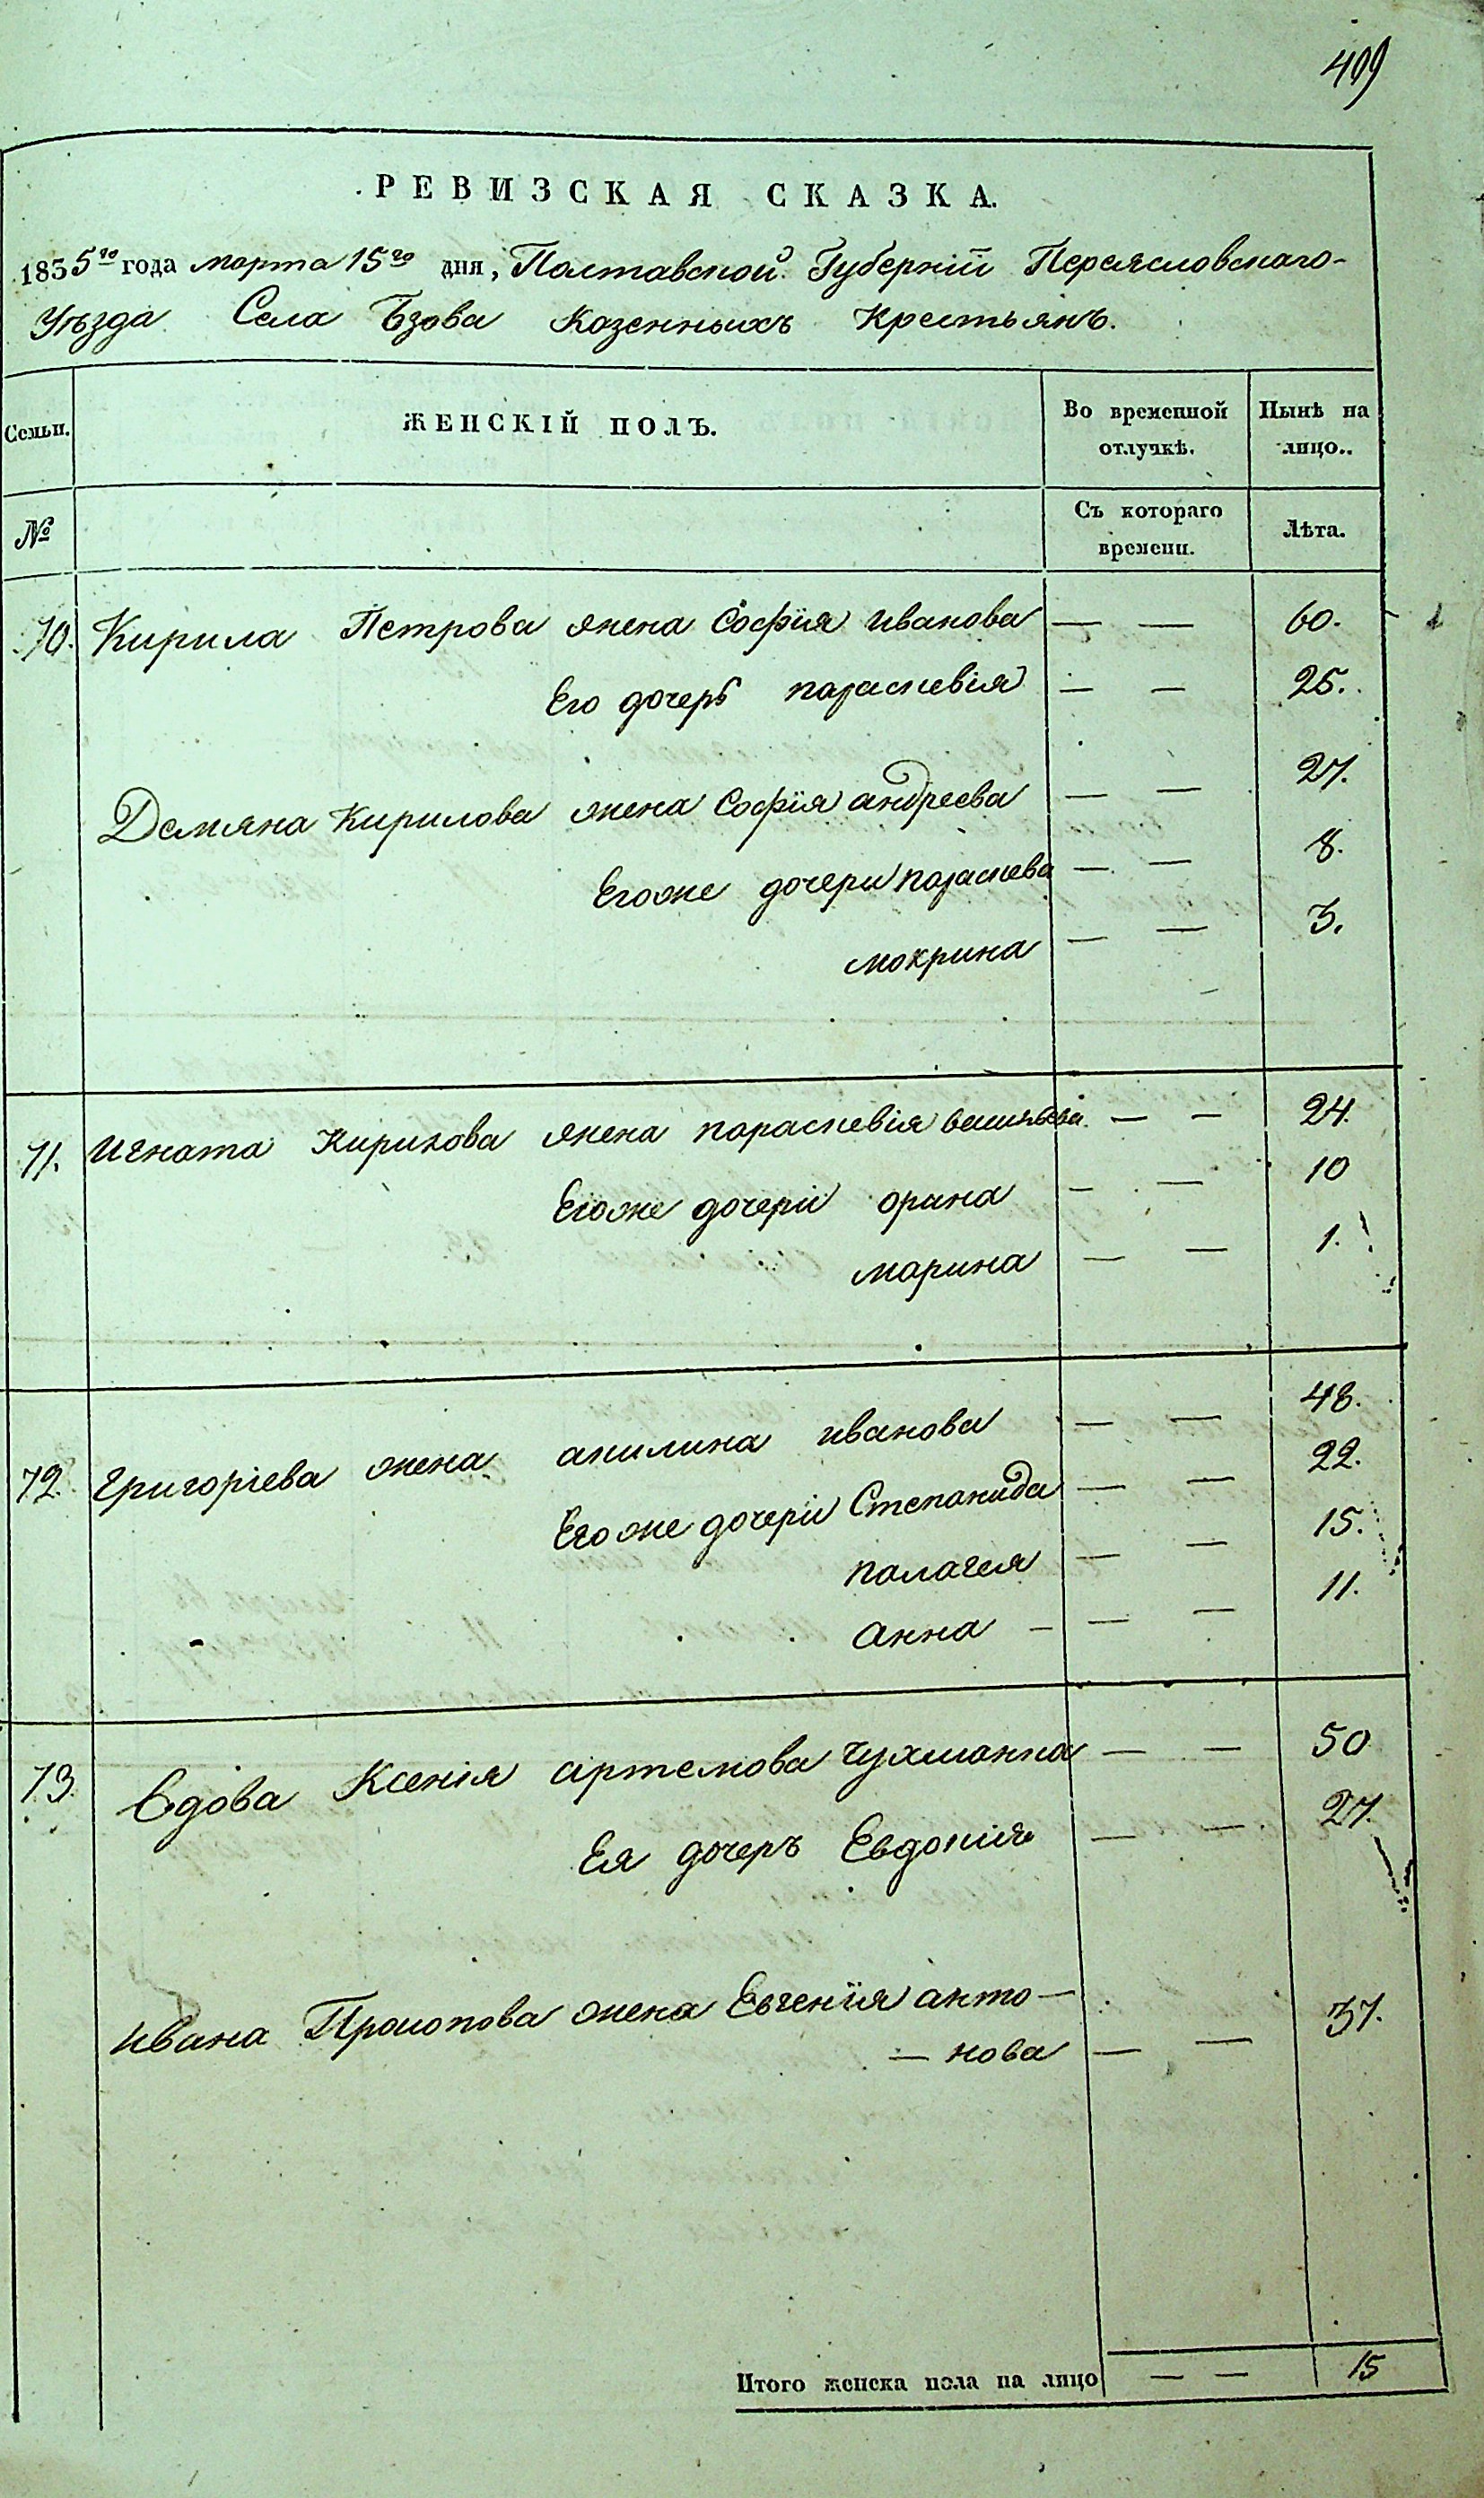 409
РЕВИЗСКАЯ СКАЗКА.
1835го года марта 15го дня, Полтавской Губерніи Переясловскаго
Уѣзда Села Бзова Казенныхъ Крестьянъ.
Семьи. ЖЕНСКІЙ ПОЛЪ. Во временной отлучкѣ. Нынѣ на лицо..
№ Съ котораго времени. Лѣта.
70. Кирила Петрова жена Софія иванова — — 60.
Его дочерь параскевія — — 25.
Демяна Кирилова жена Софія андреева — — 27.
Егоже дочери параскева — — 8.
мокрина — — 3.
71. Игната Кирилова жена параскевія — — 24.
Егоже дочери орина — — 10
марина — — 1.
72. Григоріева жена акилина иванова — — 48.
Егоже дочери Степанида — — 22.
палагея — — 15.
анна — — — 11.
73. Вдова Ксенія артемова чухманка — — 50
Ея дочерь Евдокія — — 27.
Ивана Прокопова жена Евгенія анто—
— нова — — 37.
Итого женска пола на лицо — — 15